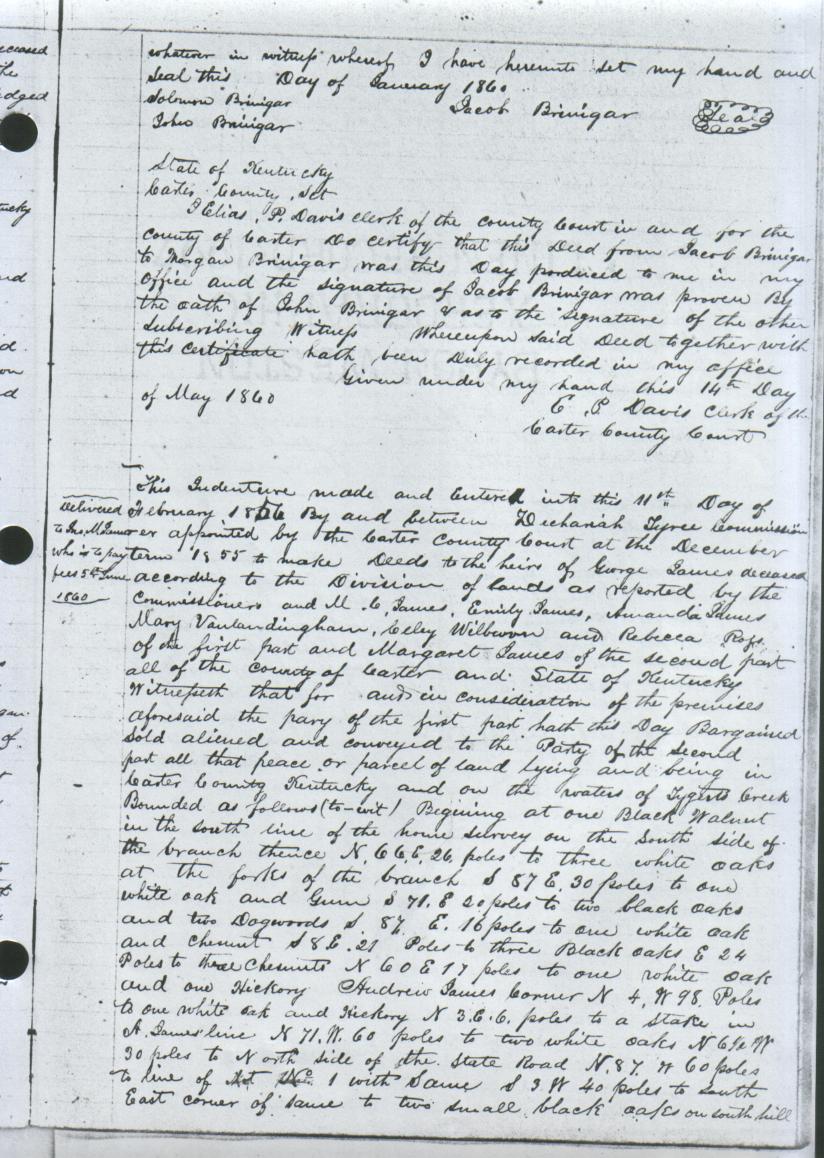 whatever in witness whereof I have hereunto set my hand and
seal this Day of January 1860
Solomon Brinigar
Jacob Brinigar Seal
John Brinigar
State of Kentucky
Carter County, Sct
I Elias, P. Davis clerk of the county Court in and for the
county of Carter Do certify that this Deed from Jacob Brinigar
to Morgan Brinigar was this Day produced to me in my
office and the signature of Jacob Brinigar was proven By
the oath of John Brinigar & as to the signature of the other
subscribing Witness Whereupon said Deed together with
this certificate hath been Duly recorded in my office
Given under my hand this 14th Day
of May 1860
E. P. Davis clerk of the
Carter County Court
This Indenture made and Entered into this 11th Day of
February 18 6 By and between Zechariah Tyree Commission
er appointed by the Carter County Court at the December
term 1855 to make Deeds to the heirs of George James deceased
according to the Division of lands as reported by the
Commissioners and M. C, James, Emily James, Amanda James
Mary Vanlandingham, Celey Wilburn and Rebecca Ross
of the first part and Margaret James of the second part
all of the county of Carter and State of Kentucky
Witnesseth that for and in consideration of the premises
aforesaid the pary of the first part hath this Day Bargained
sold aliened and conveyed to the Party of the second
part all that peace or parcel of land lying and being in
Carter County Kentucky and on the waters of Tygerts Creek
Bounded as follows (to-wit) Begining at one Black Walnut
in the south line of the home survey on the South side of
the branch thence N, 66 E, 26, poles to three white oaks
at the forks of the branch S 87 E, 30 poles to one
white oak and Gum S 71. E 20 poles to two black oaks
and two Dogwoods S 87. E. 16 poles to one white oak
and Chesnut S 8 E. 21 Poles to three Black oaks E 24
Poles to three Chesnuts N 60 E 17 poles to one white oak
and one Hickory Andrew James Corner N 4, W 98, Poles
to one white oak and Hickory N 3. E. 6. poles to a stake in
A. James' line N 71. W. 60 poles to two white oaks N W
30 poles to North side of the State Road N. 87. W 60 poles
to line of Lot No. 1 with Same S 3 W 40 poles to south
East corner of same to two small black oaks on south hill
Delivered
to Jno, M James
who is to pay
fees 5th June
1860
eceased
the
edged